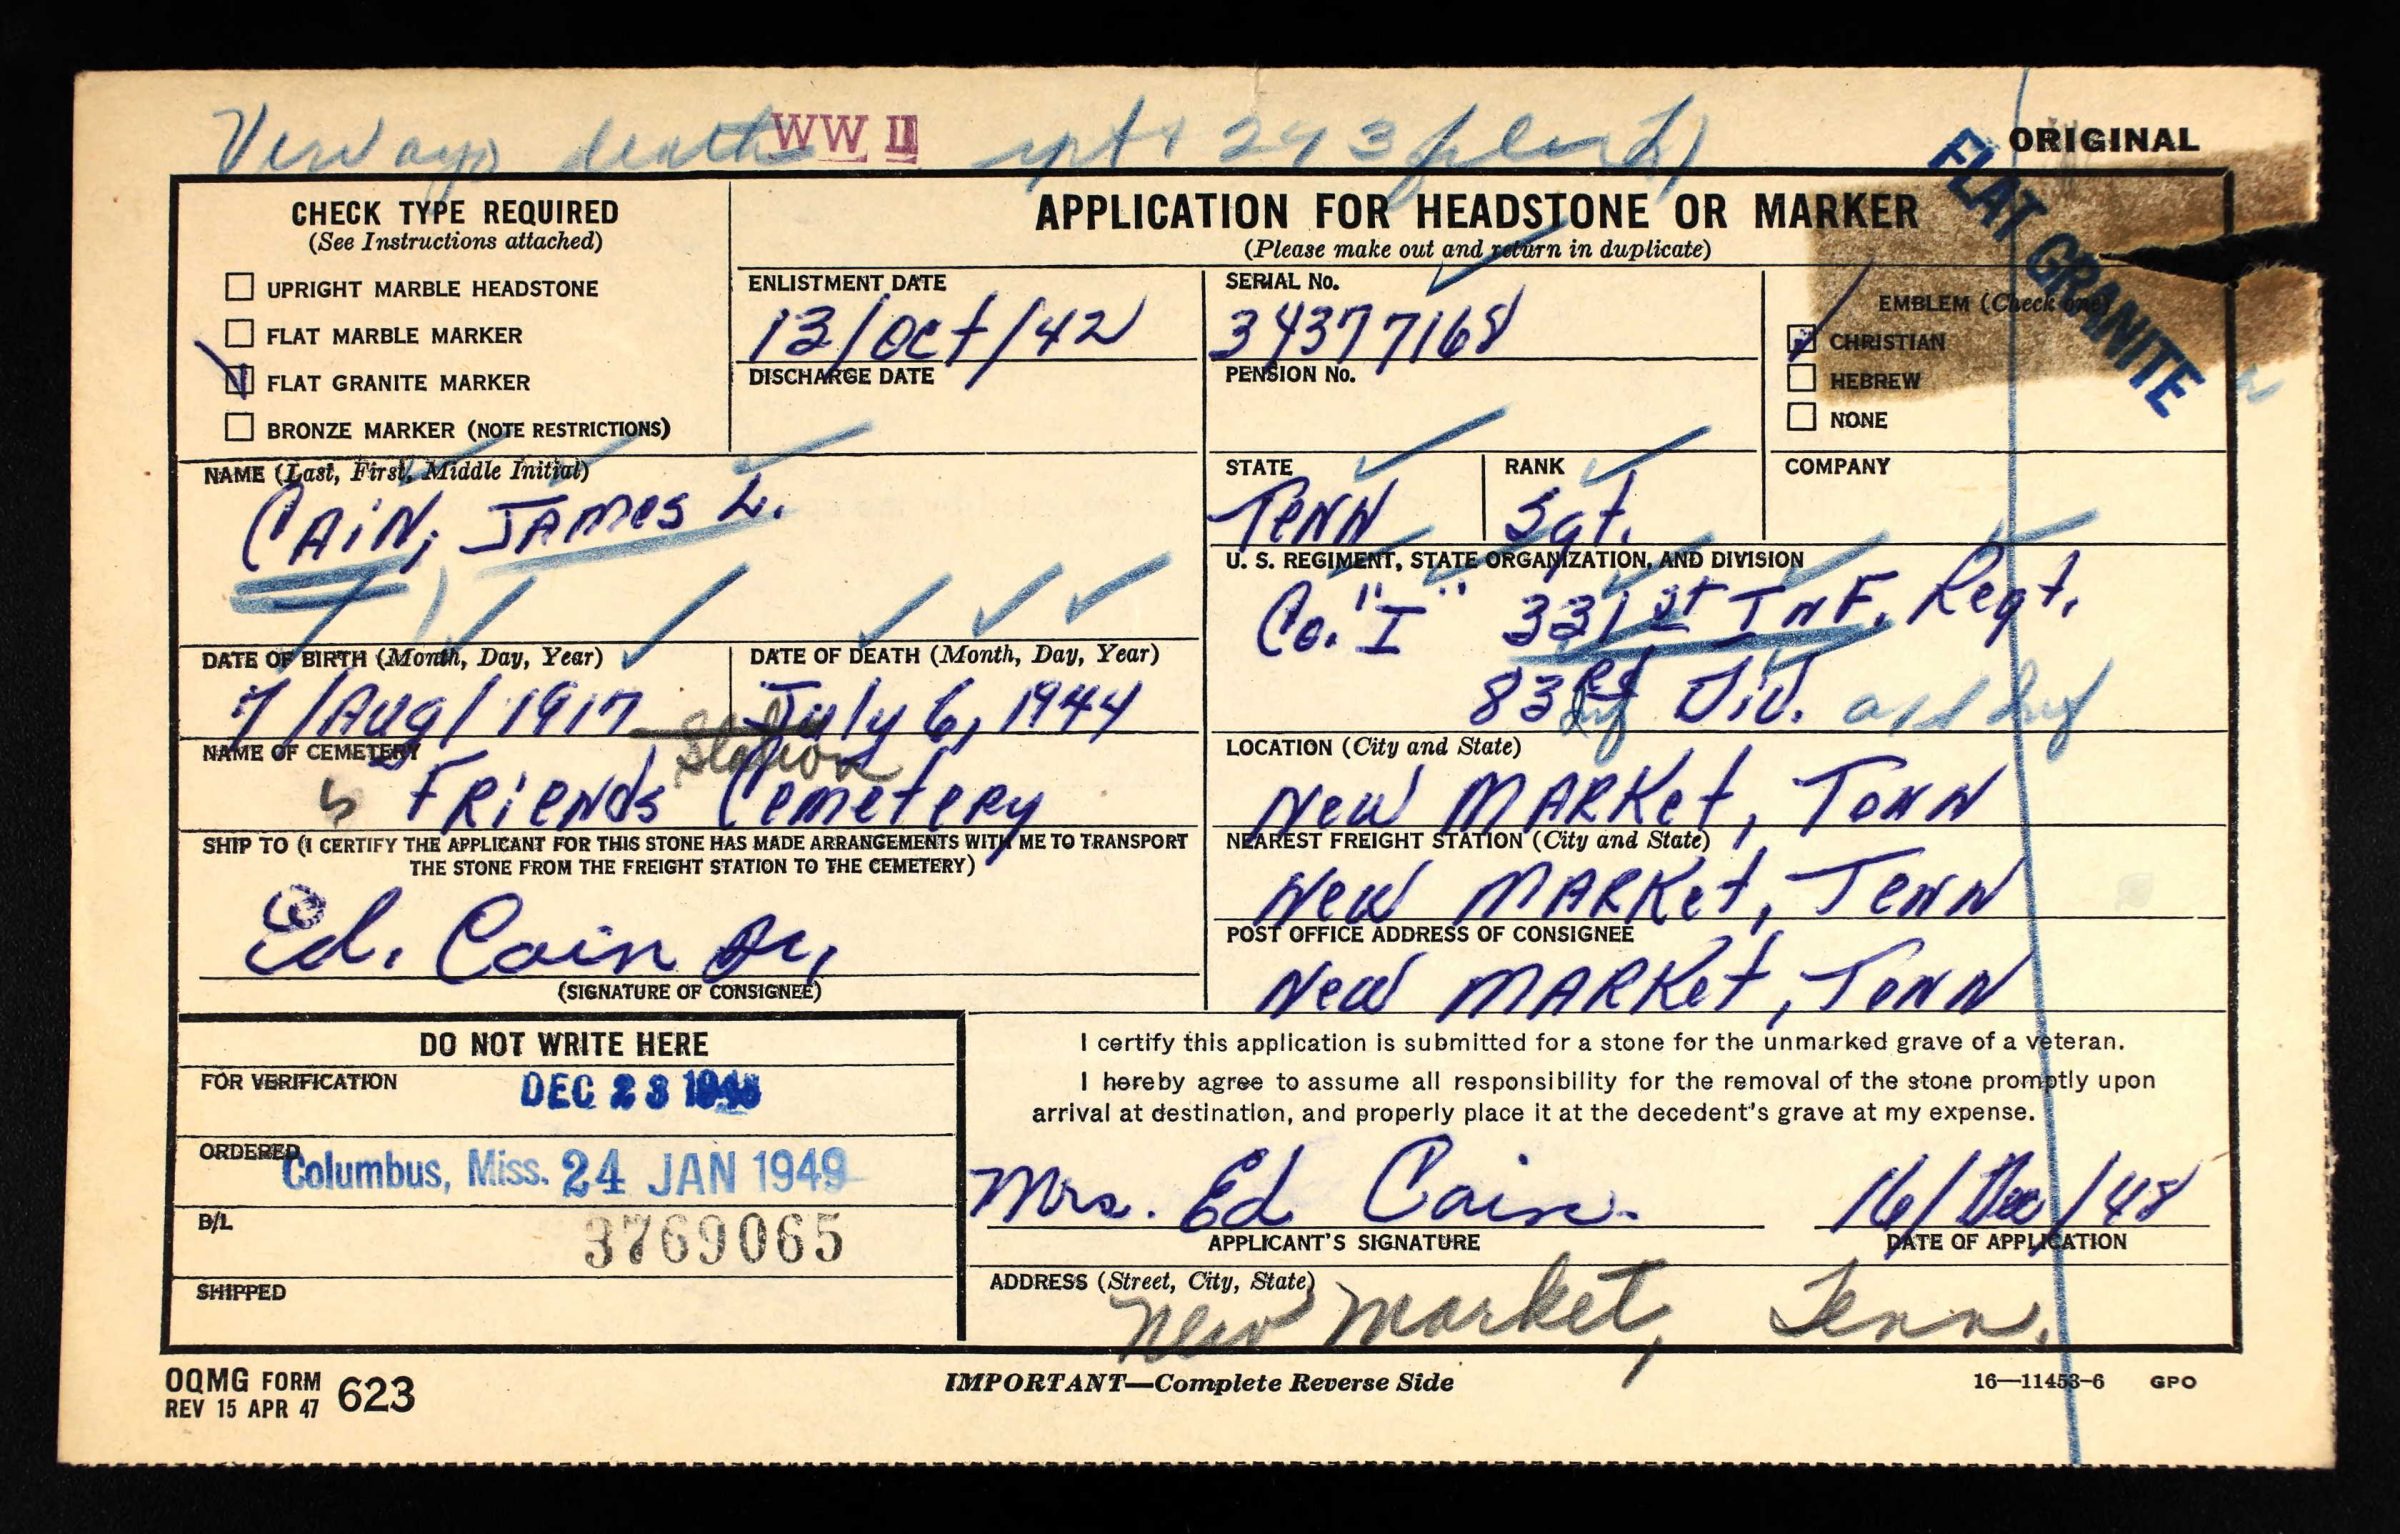 WW II
death
ORIGINAL
FLAT GRANITE
CHECK TYPE REQUIRED
(See Instructions attached)
UPRIGHT MARBLE HEADSTONE
FLAT MARBLE MARKER
FLAT GRANITE MARKER
BRONZE MARKER (NOTE RESTRICTIONS)
APPLICATION FOR HEADSTONE OR MARKER
(Please make out and return in duplicate)
ENLISTMENT DATE
13/Oct/42
DISCHARGE DATE
SERIAL No.
34377168
PENSION No.
EMBLEM (Check one)
CHRISTIAN
HEBREW
NONE
NAME (Last, First, Middle Initial)
CAIN, JAMES L.
STATE
TENN
RANK
Sgt.
COMPANY
U. S. REGIMENT, STATE ORGANIZATION, AND DIVISION
Co. "I" 331st INF. Regt.
83rd Div.
DATE OF BIRTH (Month, Day, Year)
7/Aug/1917
DATE OF DEATH (Month, Day, Year)
July 6, 1944
NAME OF CEMETERY
Station
FRIENDS CEMETERY
LOCATION (City and State)
NEW MARKET, TENN
SHIP TO (I CERTIFY THE APPLICANT FOR THIS STONE HAS MADE ARRANGEMENTS WITH ME TO TRANSPORT
THE STONE FROM THE FREIGHT STATION TO THE CEMETERY)
Ed. Cain Sr,
(SIGNATURE OF CONSIGNEE)
NEAREST FREIGHT STATION (City and State)
NEW MARKET, TENN
POST OFFICE ADDRESS OF CONSIGNEE
NEW MARKET, TENN
DO NOT WRITE HERE
FOR VERIFICATION
DEC 23 1948
ORDERED
Columbus, Miss. 24 JAN 1949
B/L
3769065
SHIPPED
I certify this application is submitted for a stone for the unmarked grave of a veteran.
I hereby agree to assume all responsibility for the removal of the stone promptly upon
arrival at destination, and properly place it at the decedent's grave at my expense.
Mrs. Ed Cain.
APPLICANT'S SIGNATURE
16/Dec/48
DATE OF APPLICATION
ADDRESS (Street, City, State)
New Market, Tenn.
OQMG FORM 623
REV 15 APR 47
IMPORTANT—Complete Reverse Side
16—11453-6 GPO